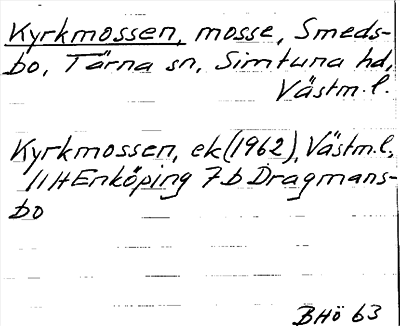 Kyrkmossen, mosse, Smeds-
bo, Tärna sn, Simtuna hd,
Västm.l.
Kyrkmossen, ek (1962), Västm.l,
11H Enköping 7b Dragmans-
bo
BHö 63